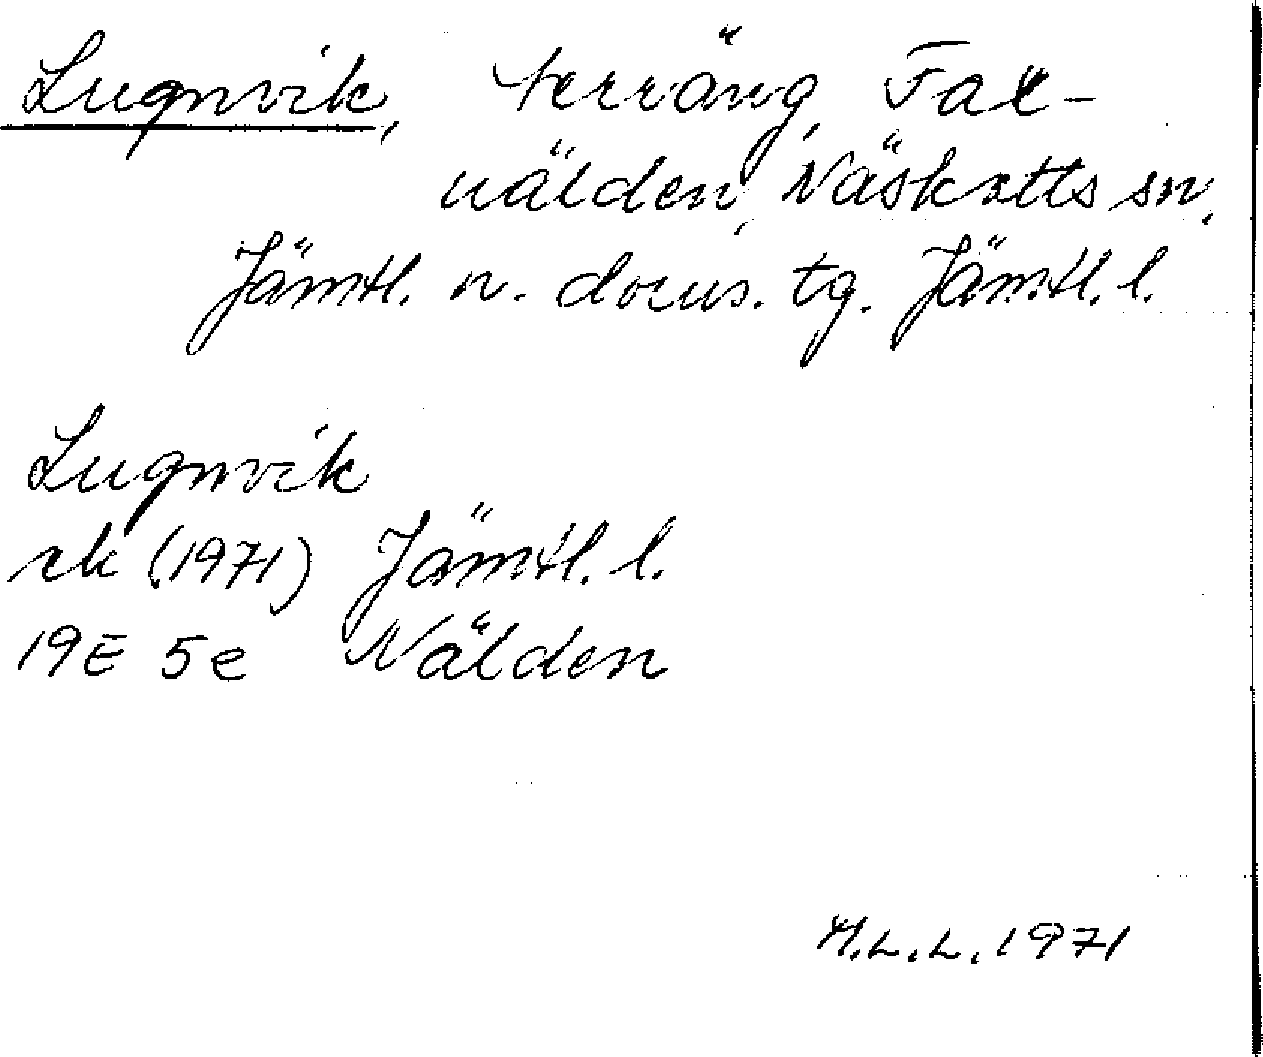 Lugnvik, terräng, Fax-
nälden, Näskotts sn,
Jämtl. n. doms. tg. Jämtl. l.
Lugnvik
rk (1971) Jämtl. l.
19E 5e Nälden
H.L.L. 1971